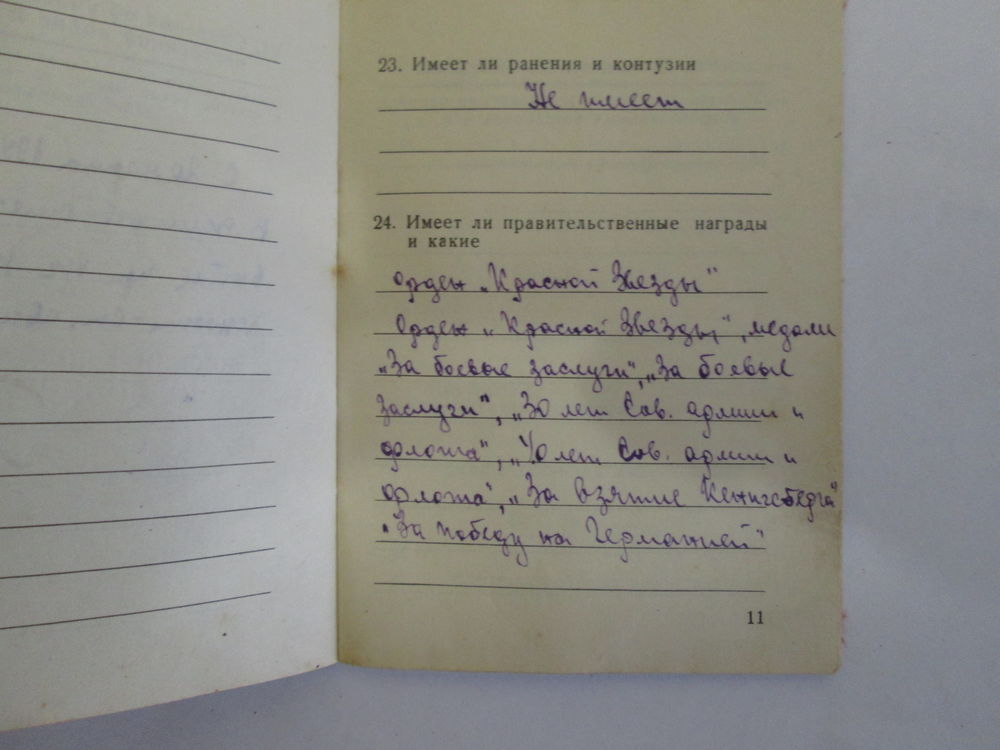 23. Имеет ли ранения и контузии
Не имеет
24. Имеет ли правительственные награды
и какие
Орден „Красной Звезды"
Орден „Красной Звезды", медали
„За боевые заслуги", „За боевые
заслуги", „30 лет Сов. армии и
флота", „40 лет Сов. армии и
флота", „За взятие Кенигсбедга"
„За победу на Германией"
11